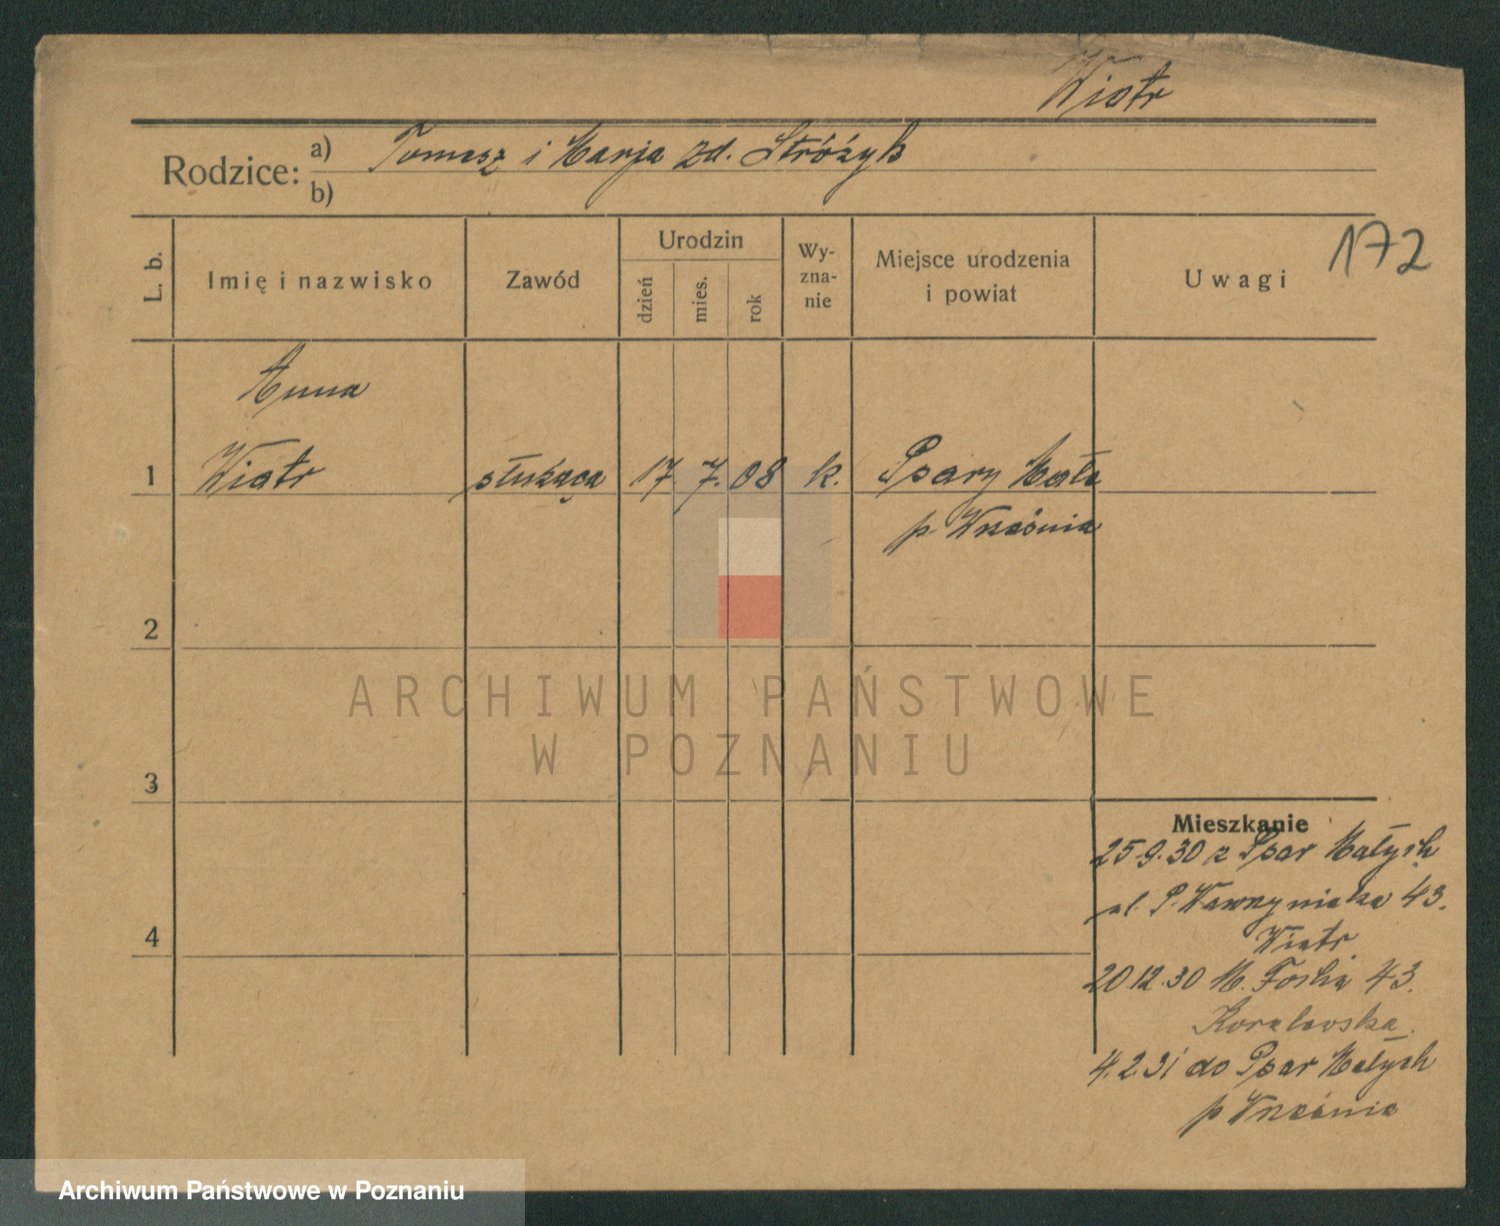 Wiatr
Rodzice: a) Tomasz i Marja zd. Stróżyk
b)
172
L. b.
Imię i nazwisko
Zawód
Urodzin
dzień
mies.
rok
Wy-
zna-
nie
Miejsce urodzenia
i powiat
Uwagi
Anna
1 Wiatr służąca 17 7. 08 k. Psary Małe
p. Września
2
ARCHIWUM PAŃSTWOWE
W POZNANIU
3
Mieszkanie
25.9.30 z Psar Małych
ul. P. Wawrzyniaka 43.
4
Wiatr
20.12.30 M. Focha 43.
4.2.31 do Psar Małych
p Września
Archiwum Państwowe w Poznaniu